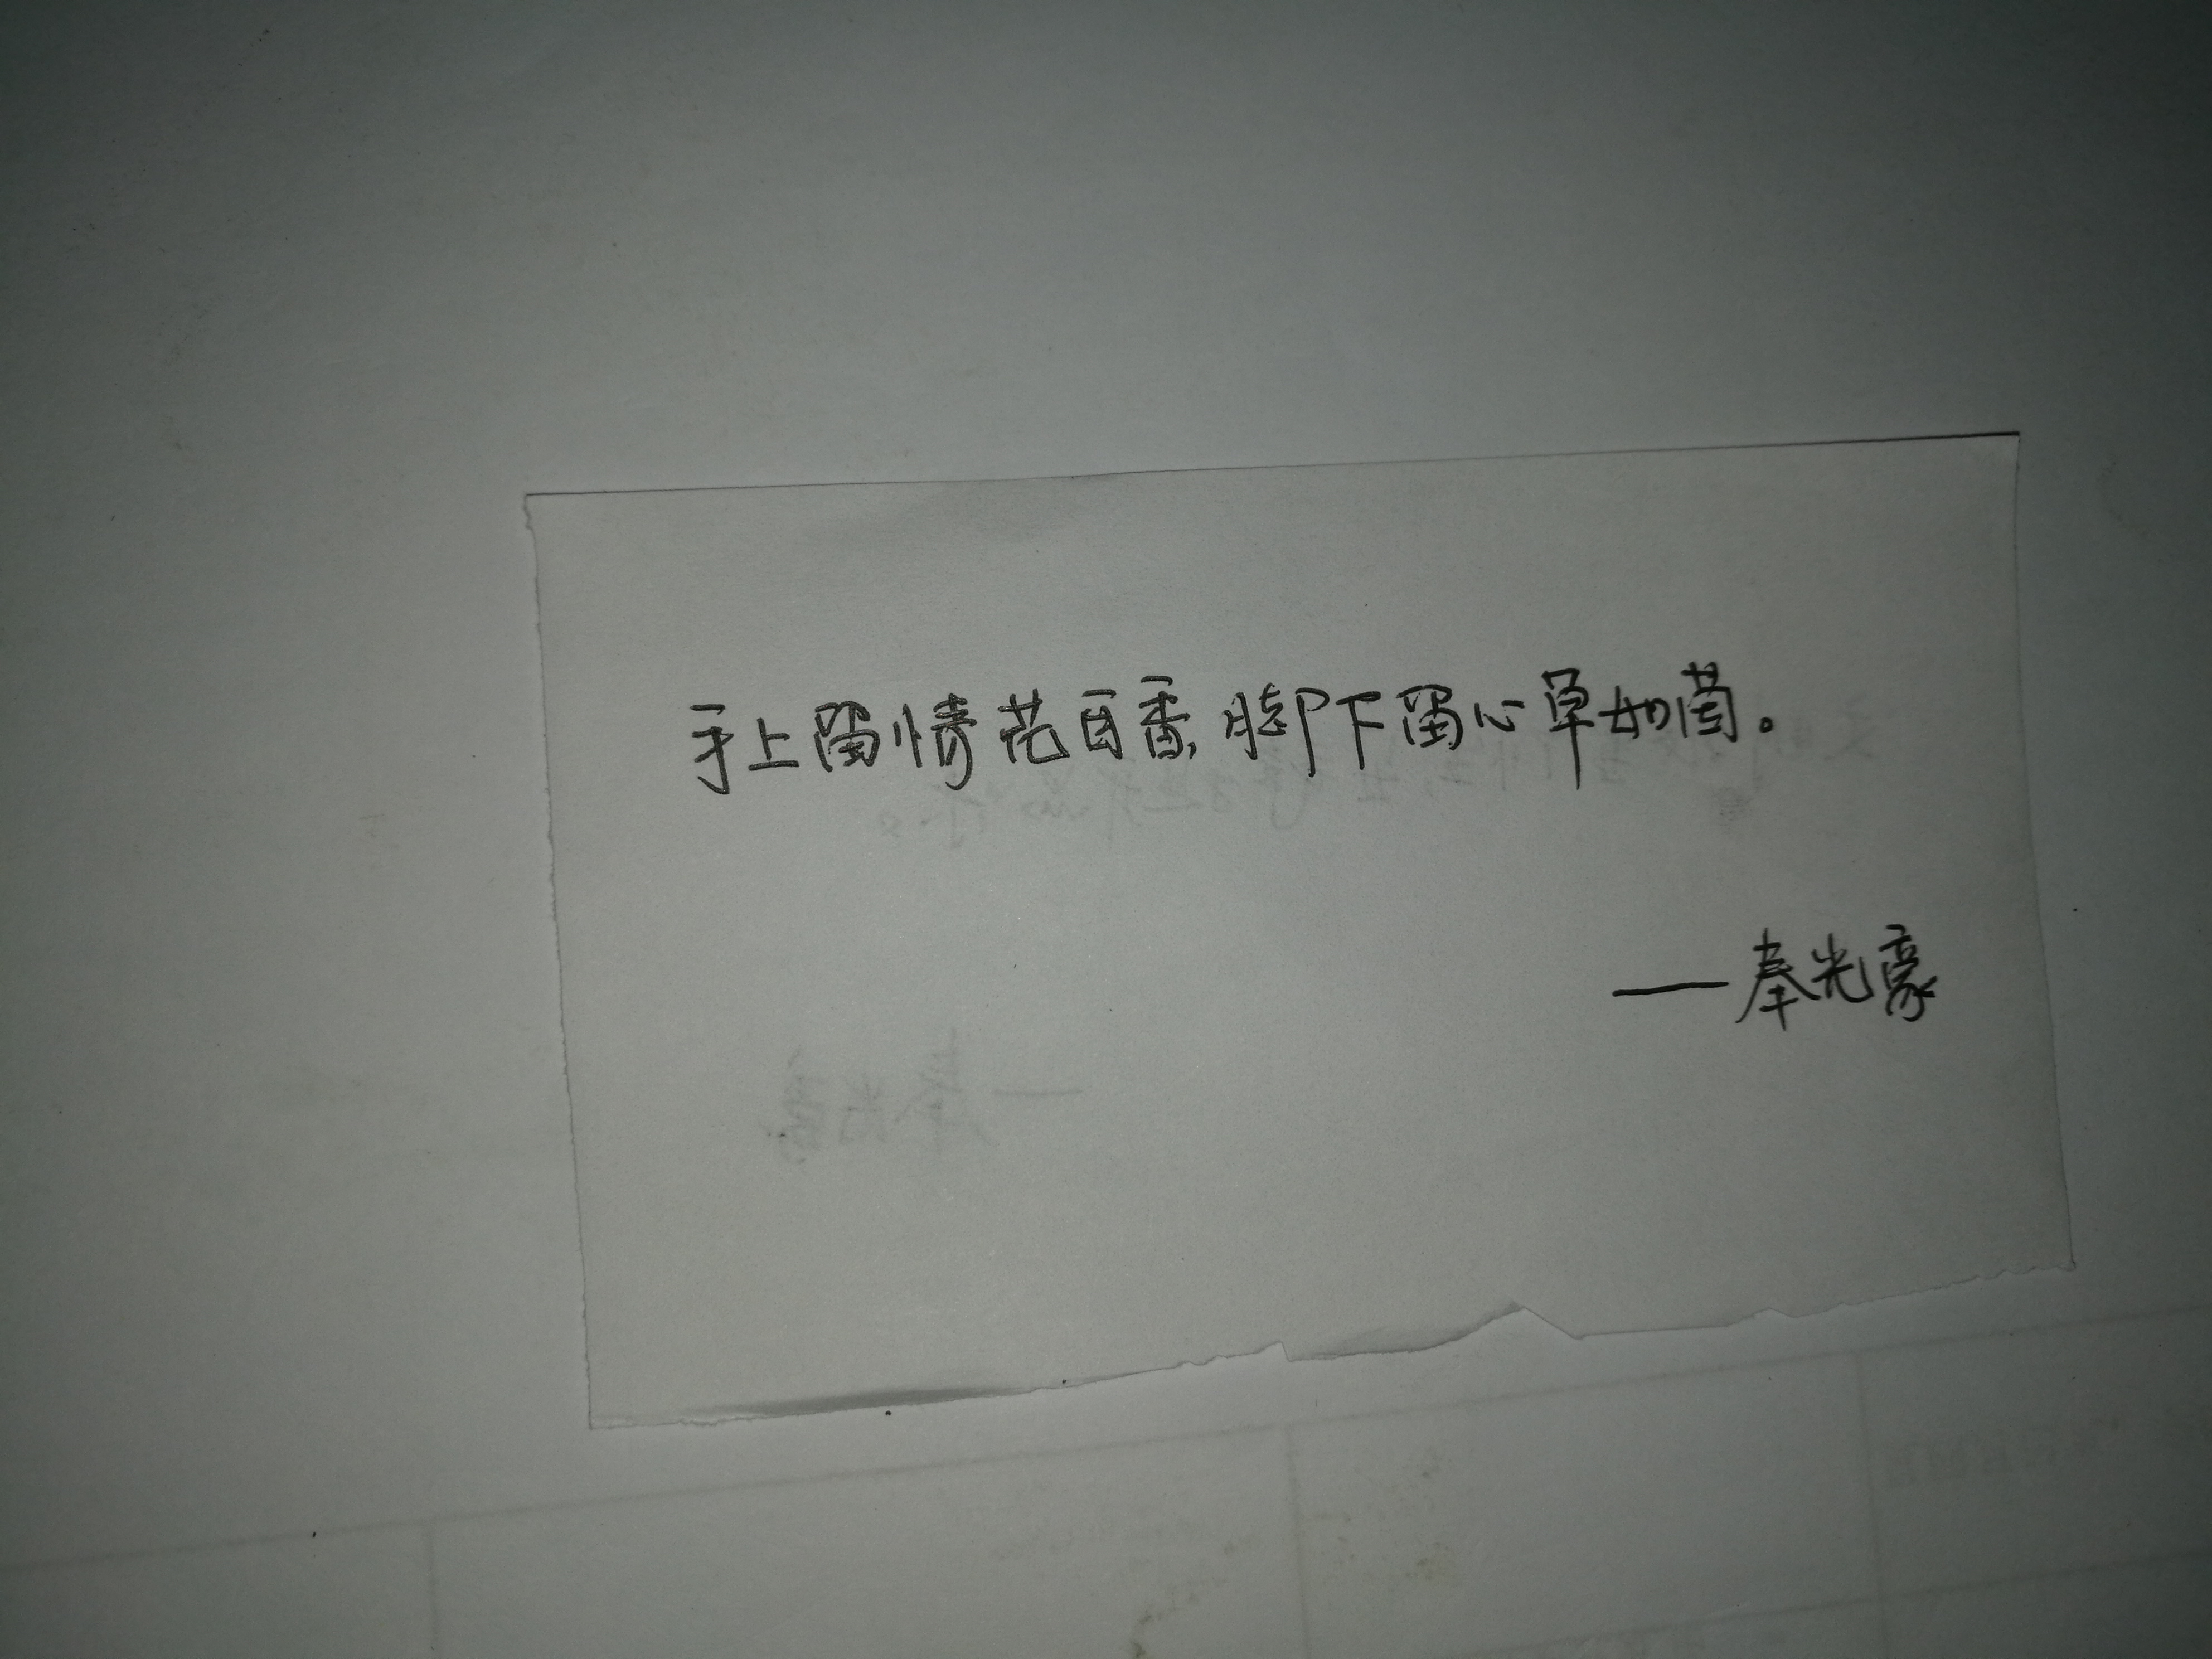 手上留情花百香,脚下留心草如茵。
——奉光豪